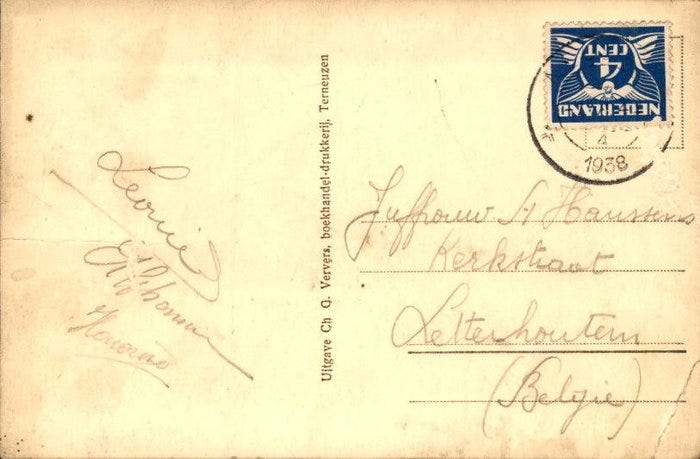 NEDERLAND
4
CENT
4
1938
Leonie
Uitgave Ch G. Ververs, boekhandel-drukkerij, Terneuzen
Juffrouw A Hanssens
Kerkstraat
Letterhoutem
(Belgie)